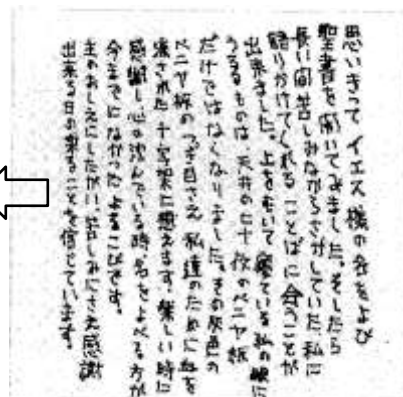 思いきって イエス様の名をよび
聖書を開いてみました。そしたら
長い間苦しみながらさがしていた、私に
語りかけてくれる ことばに 会うことが
出来ました。上をむいて 寝ている 私の眼に
うつるものは、天井の七十枚のベニヤ板
だけではなくなりました。その灰色の
ベニヤ板の つぎ目さえ 私達のために 血を
流された 十字架に 想えます。楽しい時に
感謝し 心の沈んでいる時、名をよべる方が
今までになかったよろこびです。
主のおしえにしたがい、苦しみにさえ感謝
出来る日の来ることを信じています。